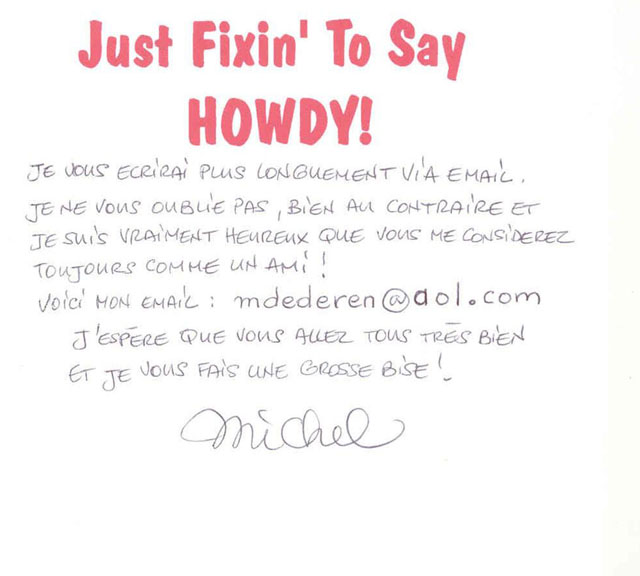 Just Fixin' To Say
HOWDY!
JE VOUS ECRIRAI PLUS LONGUEMENT VIA EMAIL.
JE NE VOUS OUBLIE PAS, BIEN AU CONTRAIRE ET
JE SUIS VRAIMENT HEUREUX QUE VOUS ME CONSIDEREZ
TOUJOURS COMME UN AMI !
VOICI MON EMAIL : mdederen@aol.com
J'ESPÈRE QUE VOUS ALLEZ TOUS TRÈS BIEN
ET JE VOUS FAIS UNE GROSSE BISE !
Michel